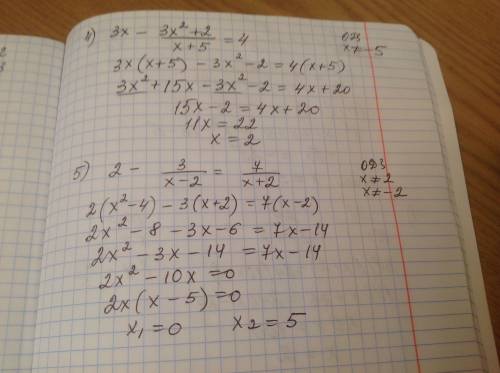 4) 3x - (3x² + 2)/(x + 5) = 4 ОДЗ x ≠ -5
3x(x+5) - 3x² - 2 = 4(x+5)
3x² + 15x - 3x² - 2 = 4x + 20
15x - 2 = 4x + 20
11x = 22
x = 2
5) 2 - 3/(x-2) = 7/(x+2) ОДЗ x ≠ 2 x ≠ -2
2(x² - 4) - 3(x+2) = 7(x-2)
2x² - 8 - 3x - 6 = 7x - 14
2x² - 3x - 14 = 7x - 14
2x² - 10x = 0
2x(x - 5) = 0
x₁ = 0 x₂ = 5